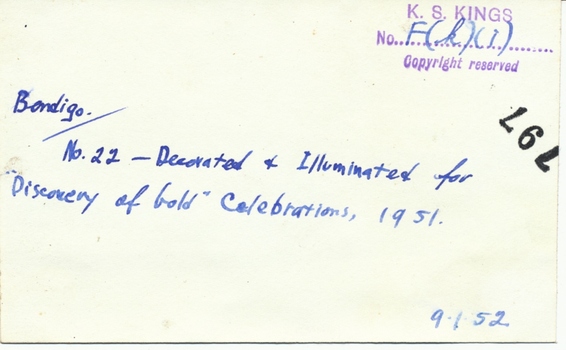 K. S. KINGS
No. F(k)(i)
Copyright reserved
Bendigo.
197
No. 22 — Decorated & Illuminated for
"Discovery of Gold" Celebrations, 1951.
9-1-52